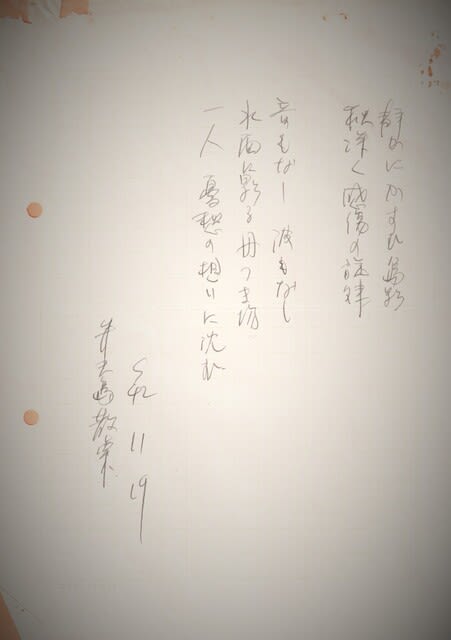 静かにかすむ島影
秋深く感傷の旋律
音もなし 波もなし
水面に影る舟つき場
一人 憂愁の想いに沈む
11 19
弁天島散策